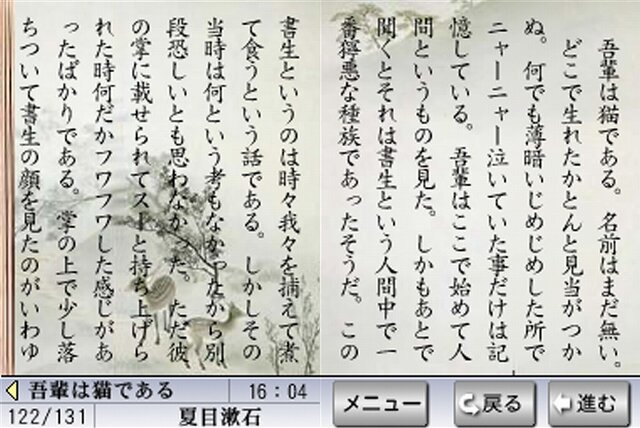 吾輩は猫である。名前はまだ無い。
どこで生れたかとんと見当がつか
ぬ。何でも薄暗いじめじめした所で
ニャーニャー泣いていた事だけは記
憶している。吾輩はここで始めて人
間というものを見た。しかもあとで
聞くとそれは書生という人間中で一
番獰悪な種族であったそうだ。この
書生というのは時々我々を捕えて煮
て食うという話である。しかしその
当時は何という考もなかったから別
段恐しいとも思わなかった。ただ彼
の掌に載せられてスーと持ち上げら
れた時何だかフワフワした感じがあ
ったばかりである。掌の上で少し落
ちついて書生の顔を見たのがいわゆ
吾輩は猫である
16:04
122/131
夏目漱石
メニュー
戻る
進む